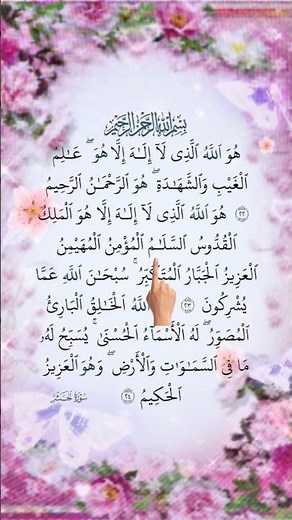 بِسْمِ ٱللَّهِ ٱلرَّحْمَٰنِ ٱلرَّحِيمِ
هُوَ ٱللَّهُ ٱلَّذِى لَآ إِلَٰهَ إِلَّا هُوَ ۖ عَٰلِمُ
ٱلْغَيْبِ وَٱلشَّهَٰدَةِ ۖ هُوَ ٱلرَّحْمَٰنُ ٱلرَّحِيمُ
٢٢ هُوَ ٱللَّهُ ٱلَّذِى لَآ إِلَٰهَ إِلَّا هُوَ ٱلْمَلِكُ
ٱلْقُدُّوسُ ٱلسَّلَٰمُ ٱلْمُؤْمِنُ ٱلْمُهَيْمِنُ
ٱلْعَزِيزُ ٱلْجَبَّارُ ٱلْمُتَكَبِّرُ ۚ سُبْحَٰنَ ٱللَّهِ عَمَّا
يُشْرِكُونَ ٢٣ ٱللَّهُ ٱلْخَٰلِقُ ٱلْبَارِئُ
ٱلْمُصَوِّرُ ۖ لَهُ ٱلْأَسْمَآءُ ٱلْحُسْنَىٰ ۚ يُسَبِّحُ لَهُۥ
مَا فِى ٱلسَّمَٰوَٰتِ وَٱلْأَرْضِ ۖ وَهُوَ ٱلْعَزِيزُ
ٱلْحَكِيمُ ٢٤ سُورَةُ الحَشْر